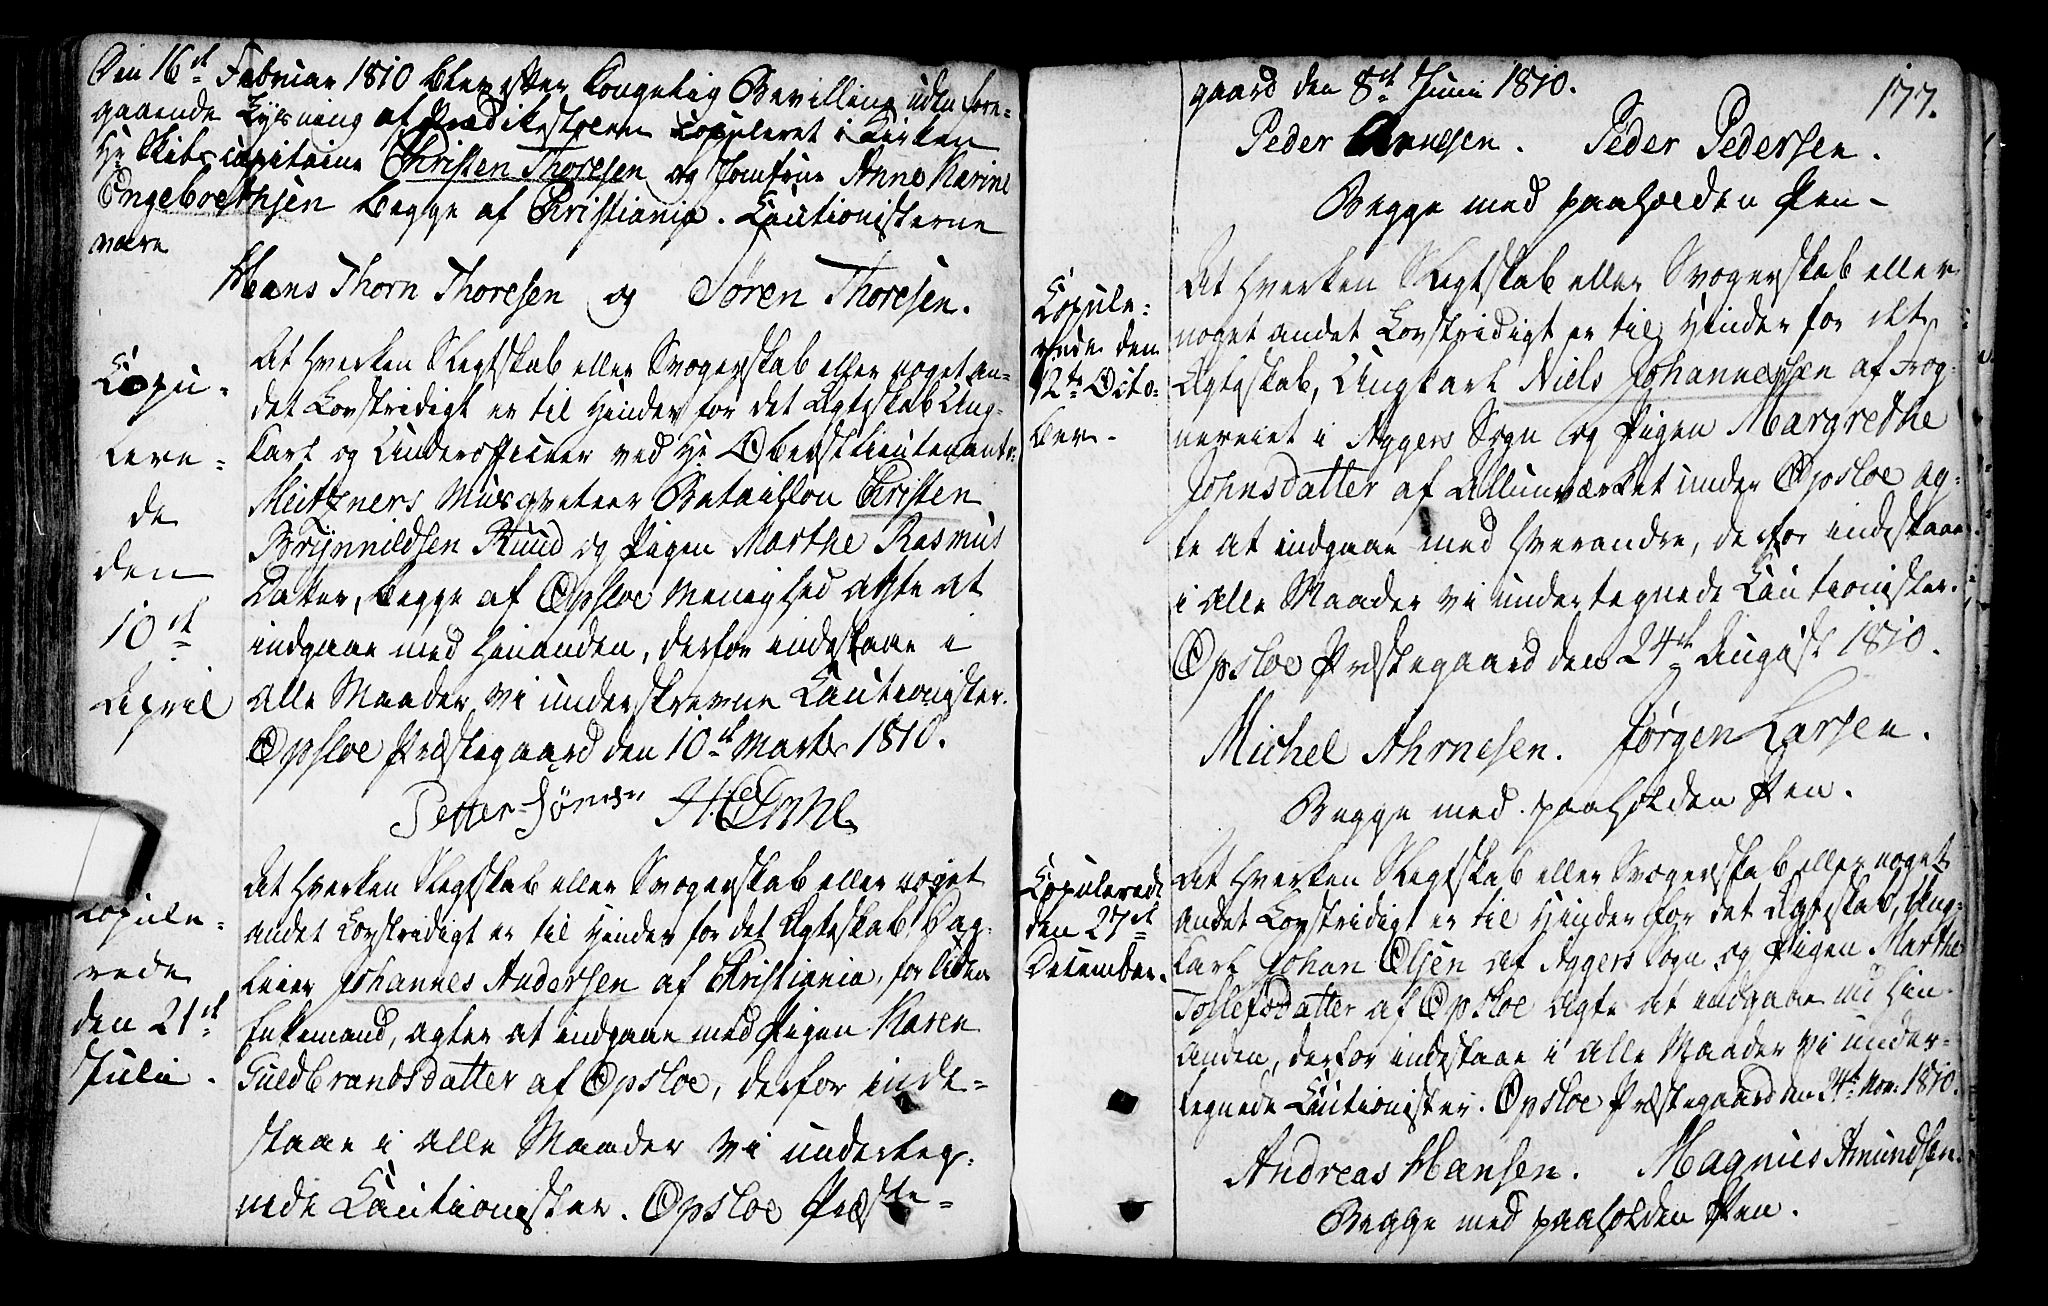 Den 16de Februar 1810 blev efter Kongelig Bevilling uden fore-
gaaende Lysning af Prædikestolen copuleret i Kirken
Hr Skibscapitaine Christen Thoresen og Jomfrue Anne Karine
Engebrethsen begge af Christiania. Cautionisterne
vare
Hans Thorn Thoresen og Søren Thoresen.
Copu-
lere-
de
den
10de
April
At hverken Slegtskab eller Svogerskab eller noget an-
det Lovstridigt er til Hinder for det Ægteskab Ung-
karl og Underofficeer ved Hr Oberstlieutenant
Meitzners Musqveteer Bataillon Christen
Brynnildsen Ruud og Pigen Marthe Rasmus
Datter, begge af Opsloe Menighed agte at
indgaae med hinanden, derfor indestaae i
alle Maader vi underskrevne Cautionister.
Opsloe Præstegaard den 10de Marts 1810.
Petter Sörensen
Copule-
rede
den 21de
Julii.
At hverken Slegtskab eller Svogerskab eller noget
andet Lovstridigt er til Hinder for det Ægteskab Dag-
leier Johannes Andersen af Christiania, for Tiden
Enkemand, agter at indgaae med Pigen Karen
Guldbrandsdatter af Opsloe, derfor inde-
staae i alle Maader vi underteg-
nede Cautionister. Opsloe Præste-
177.
gaard den 8de Junii 1810.
Peder Arnesen. Peder Pedersen.
Begge med paaholden Pen-
Copule-
rede den
12te Octo-
ber.
At hverken Slegtskab eller Svogerskab eller
noget andet Lovstridigt er til Hinder for det
Ægteskab, Ungkarl Niels Johannessen af Frog-
nereiet i Aggers Sogn og Pigen Margrethe
Johnsdatter af Allunværket under Opsloe ag-
te at indgaae med hverandre, derfor indestaae
i alle Maader vi undertegnede Cautionister.
Opsloe Præstegaard den 24de August 1810.
Michel Ahrnesen. Jørgen Larsen.
Begge med paaholden Pen.
Copulerede
den 27de
December.
At hverken Slegtskab eller Svogerskab eller noget
andet Lovstridigt er til Hinder for det Ægteskab, Ung-
karl Johan Olsen af Aggers Sogn og Pigen Marthe
Tollefsdatter af Opsloe agte at indgaae md hin-
anden, derfor indestaae i alle Maader vi under-
tegnede Cautionister. Opsloe Præstegaard den 24de Nov. 1810.
Andreas Hansen. Magnus Amundsen.
Begge med paaholden Pen.